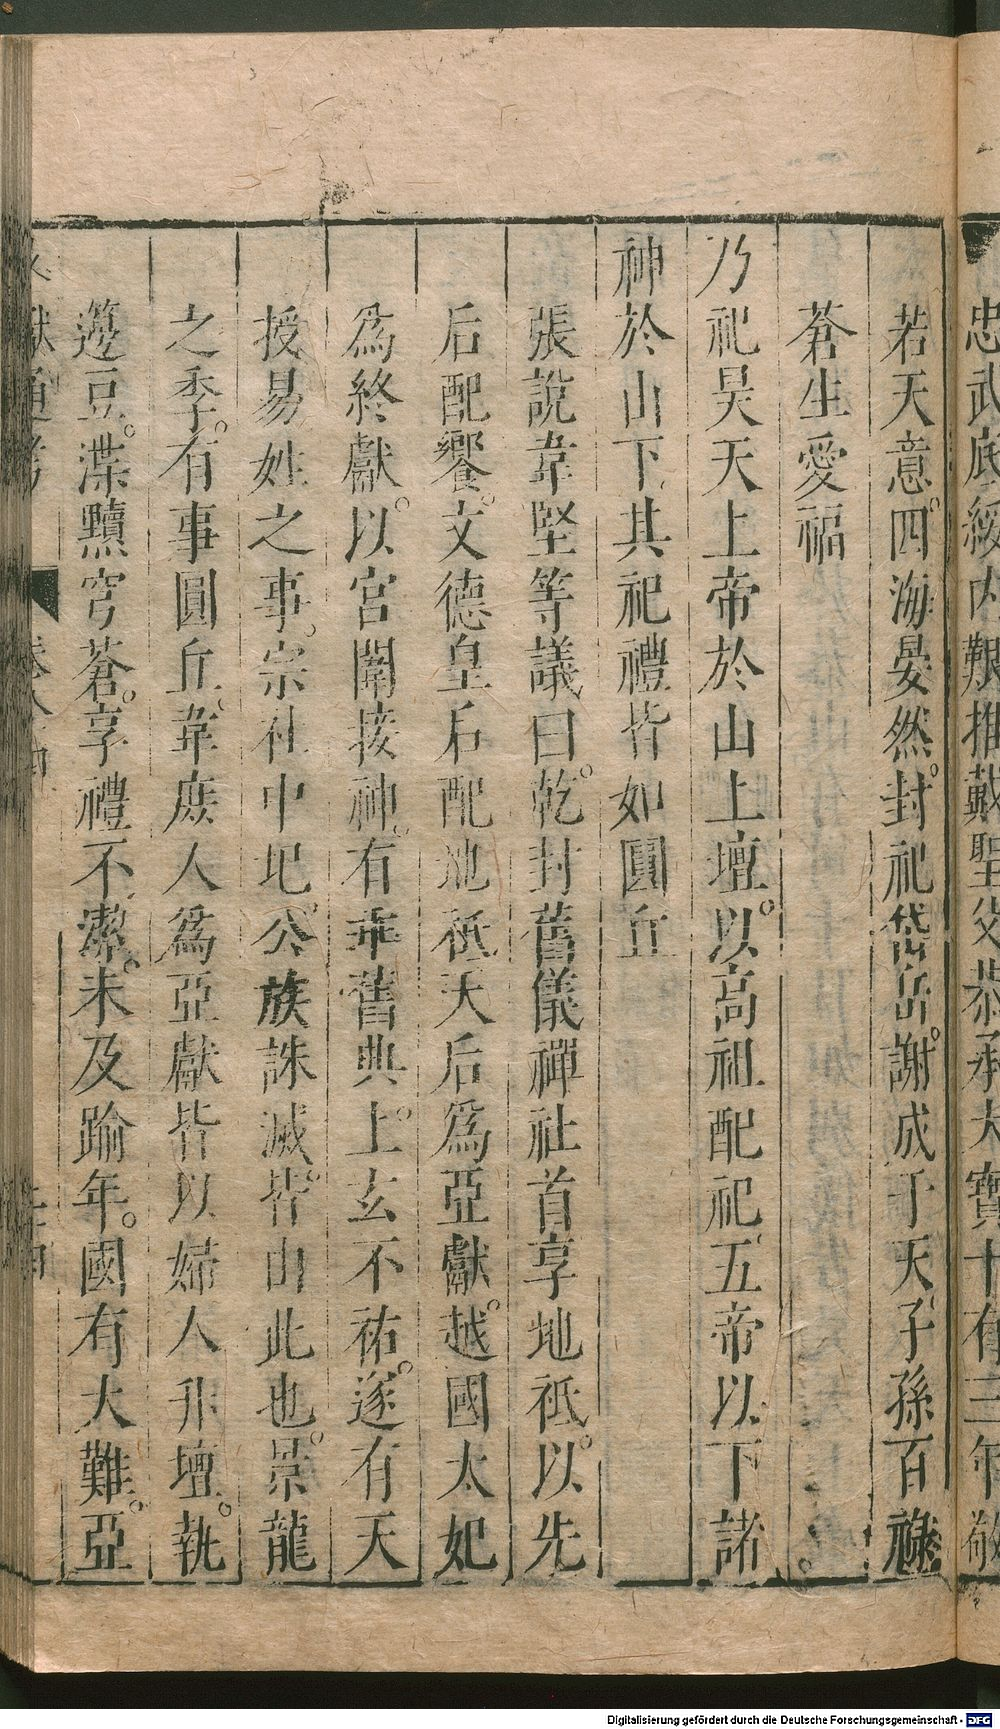 忠武底綏內艱推戴聖父恭承大寶十有三年敬
若天意四海晏然封祀岱岳謝成于天子孫百祿
蒼生受福
乃祀昊天上帝於山上壇以高祖配祀五帝以下諸
神於山下其祀禮皆如圓丘
張說韋堅等議曰乾封舊儀禪社首享地祇以先
后配饗文德皇后配地祇天后爲亞獻越國太妃
爲終獻以宮闈接神有乖舊典上玄不祐遂有天
授易姓之事宗社中圮公族誅滅皆由此也景龍
之季有事圓丘韋庶人爲亞獻皆以婦人升壇執
籩豆渫黷穹蒼享禮不潔未及踰年國有大難亞
文獻通考 卷八
Digitalisierung gefördert durch die Deutsche Forschungsgemeinschaft - DFG